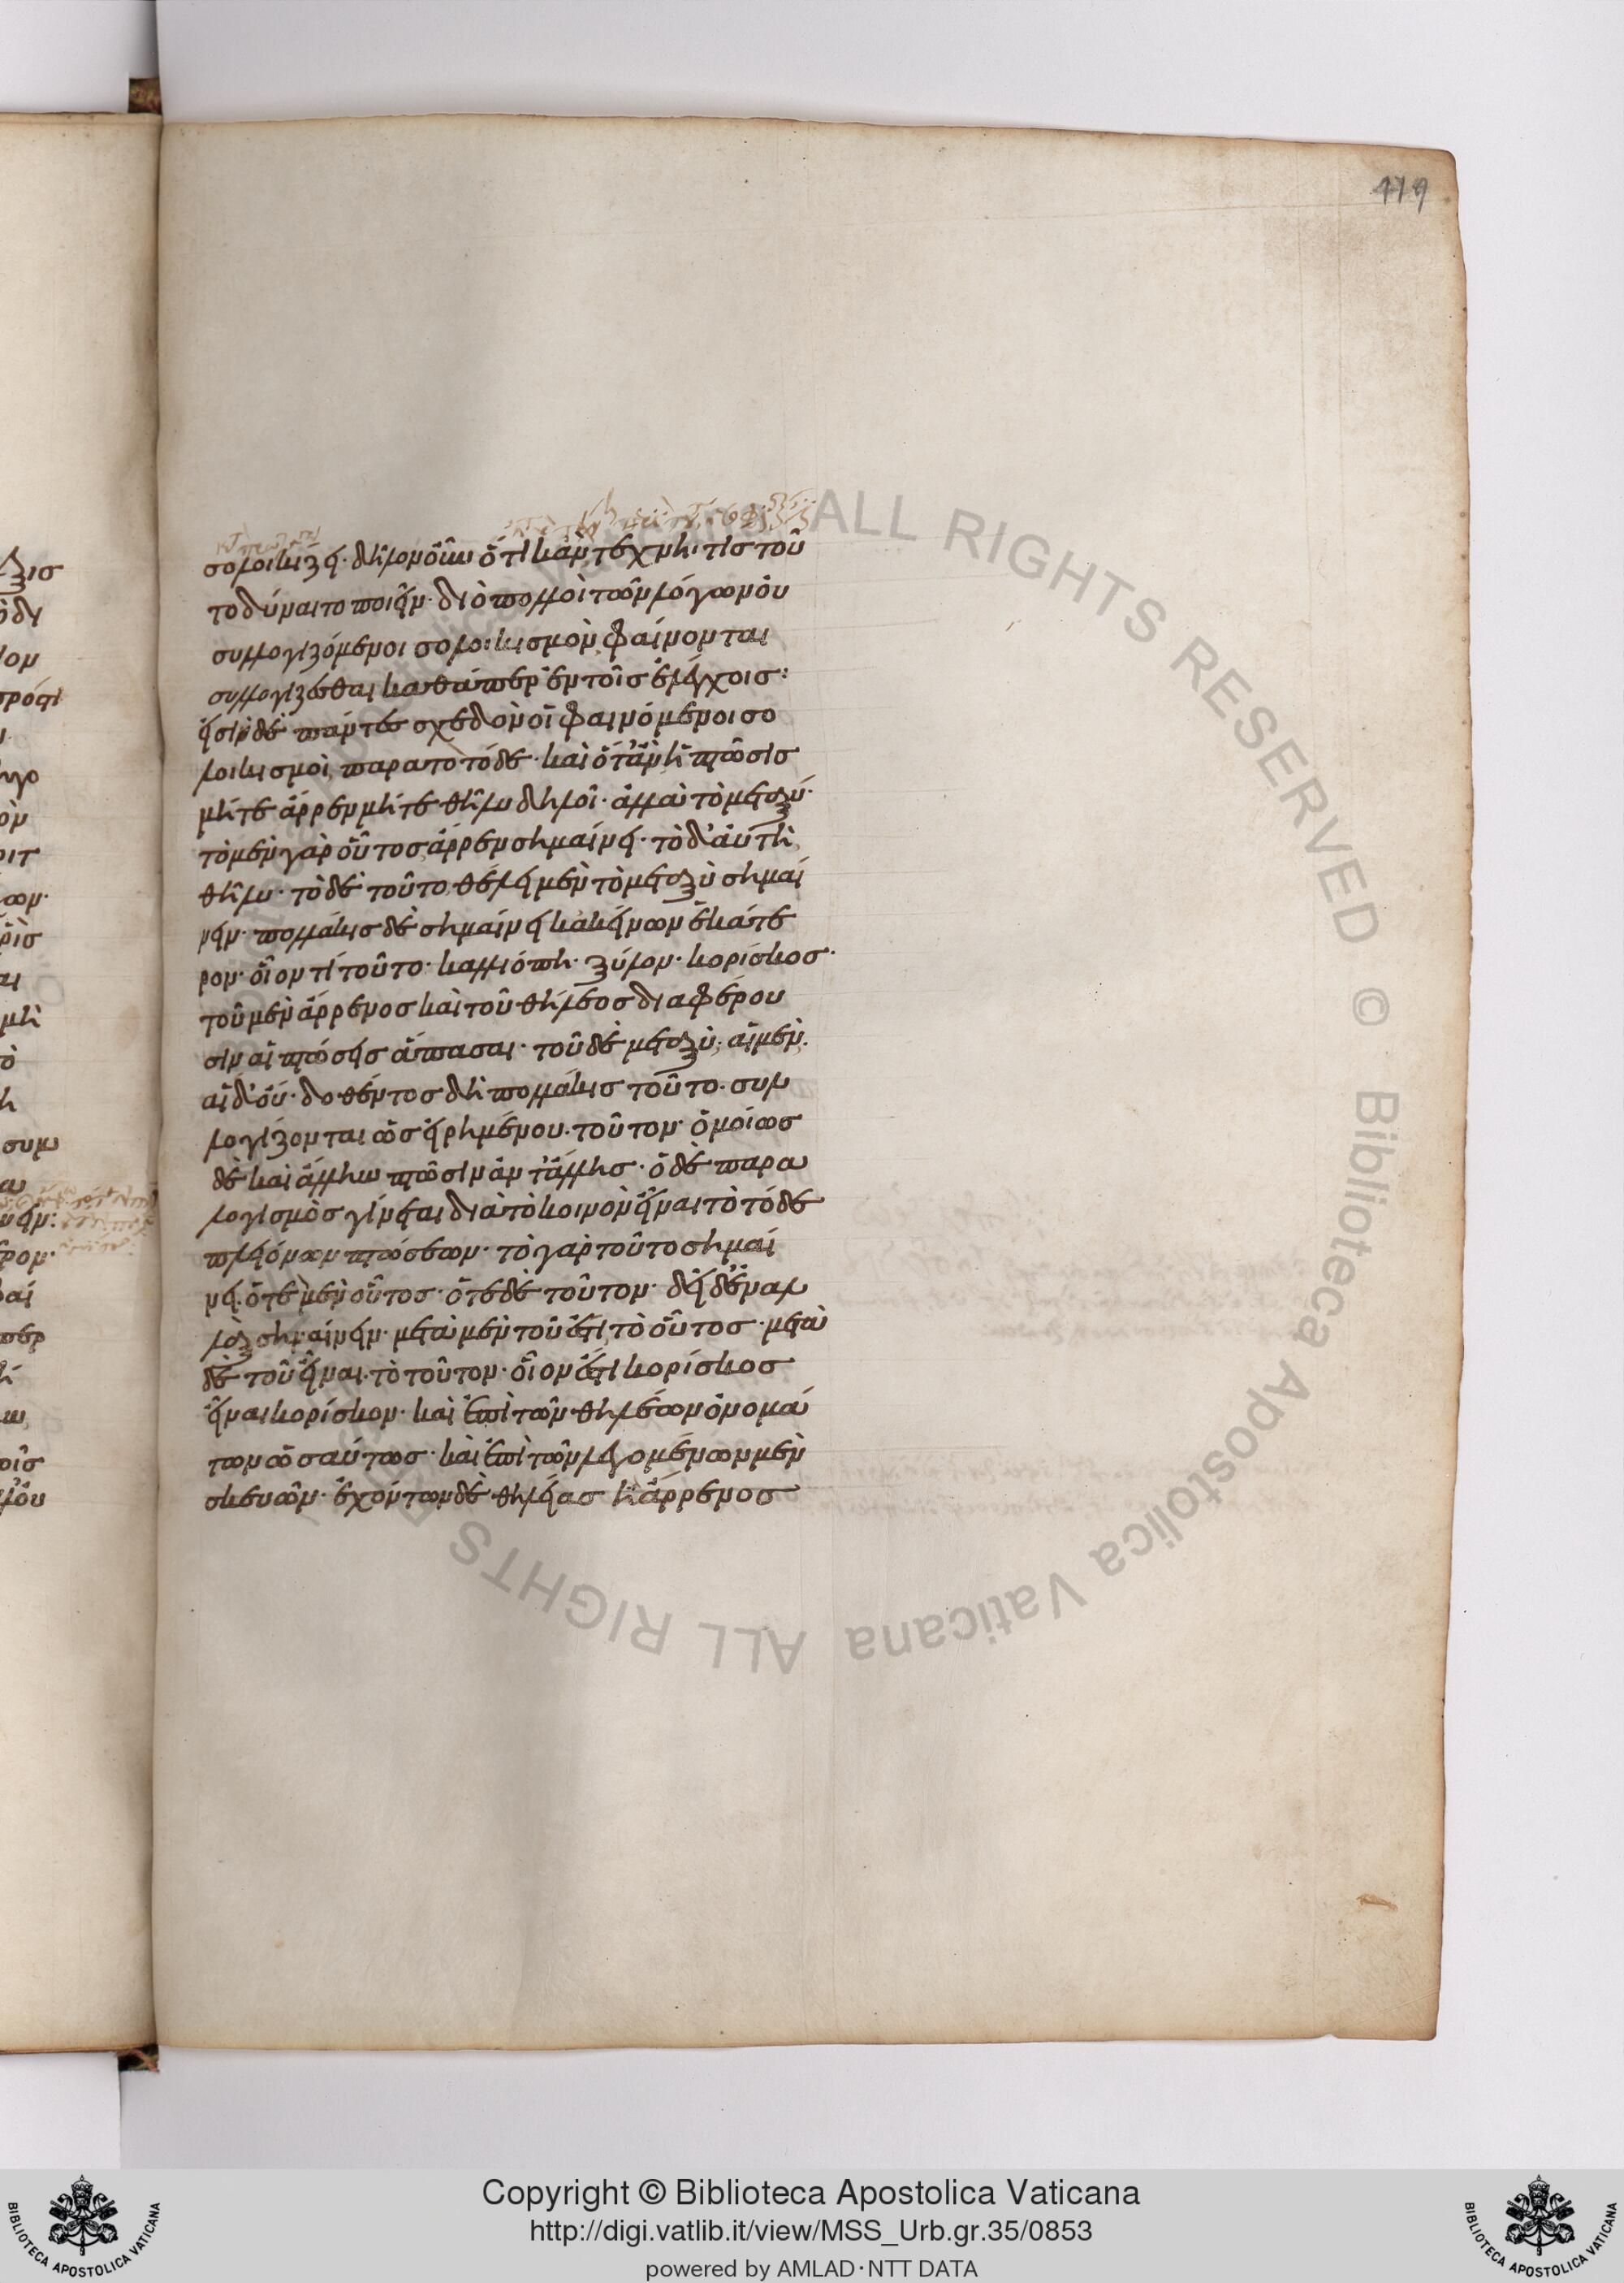 419
σολοικίζει· δῆλον οὖν ὅτι κἂν τέχνηι τὶς τοῦ
το δύναιτο ποιεῖν· διὸ πολλοὶ τῶν λόγων οὐ
συλλογιζόμενοι σολοικισμὸν φαίνονται
συλλογίζεσθαι καθάπερ ἐν τοῖς ἐλέγχοις:
εἰσὶν δὲ πάντες σχεδὸν οἱ φαινόμενοι σο
λοικισμοὶ παρὰ τὸ τόδε· καὶ ὅταν ἡ πτῶσις
μήτε ἄρρεν μήτε θῆλυ δηλοῖ· ἀλλὰ τὸ μεταξύ·
τὸ μὲν γὰρ οὗτος ἄρρεν σημαίνει· τὸ δ' αὕτη
θῆλυ· τὸ δὲ τοῦτο θέλει μὲν τὸ μεταξὺ σημαί
νειν· πολλάκις δὲ σημαίνει κἀκείνων ἑκάτε
ρον· οἷον τί τοῦτο· καλλιόπη· ξύλον· κορίσκος·
τοῦ μὲν ἄρρενος καὶ τοῦ θήλεος διαφέρου
σιν αἱ πτώσεις ἅπασαι· τοῦ δὲ μεταξὺ· αἱ μὲν·
αἱ δ' οὔ· δοθέντος δὴ πολλάκις τοῦτο· συλ
λογίζονται ὡς εἰρημένου τοῦτον· ὁμοίως
δὲ καὶ ἄλλην πτῶσιν ἀντ' ἄλλης· ὁ δὲ παρα
λογισμὸς γίνεται διὰ τὸ κοινὸν εἶναι τὸ τόδε
πλειόνων πτώσεων· τὸ γὰρ τοῦτο σημαί
νει· ὅτε μὲν οὗτος· ὅτε δὲ τοῦτον· δεῖ δ' ἐναλ
λὰξ σημαίνειν· μετὰ μὲν τοῦ ἔστι τὸ οὗτος· μετὰ
δὲ τοῦ εἶναι τὸ τοῦτον· οἷον ἔστι κορίσκος
εἶναι κορίσκον· καὶ ἐπὶ τῶν θηλέων ὀνομά
των ὡσαύτως· καὶ ἐπὶ τῶν λεγομένων μὲν
σκευῶν· ἐχόντων δὲ θηλείας ἢ ἄρρενος
ALL RIGHTS RESERVED © Biblioteca Apostolica Vaticana
Copyright © Biblioteca Apostolica Vaticana
http://digi.vatlib.it/view/MSS_Urb.gr.35/0853
powered by AMLAD・NTT DATA
BIBLIOTECA APOSTOLICA VATICANA
BIBLIOTECA APOSTOLICA VATICANA